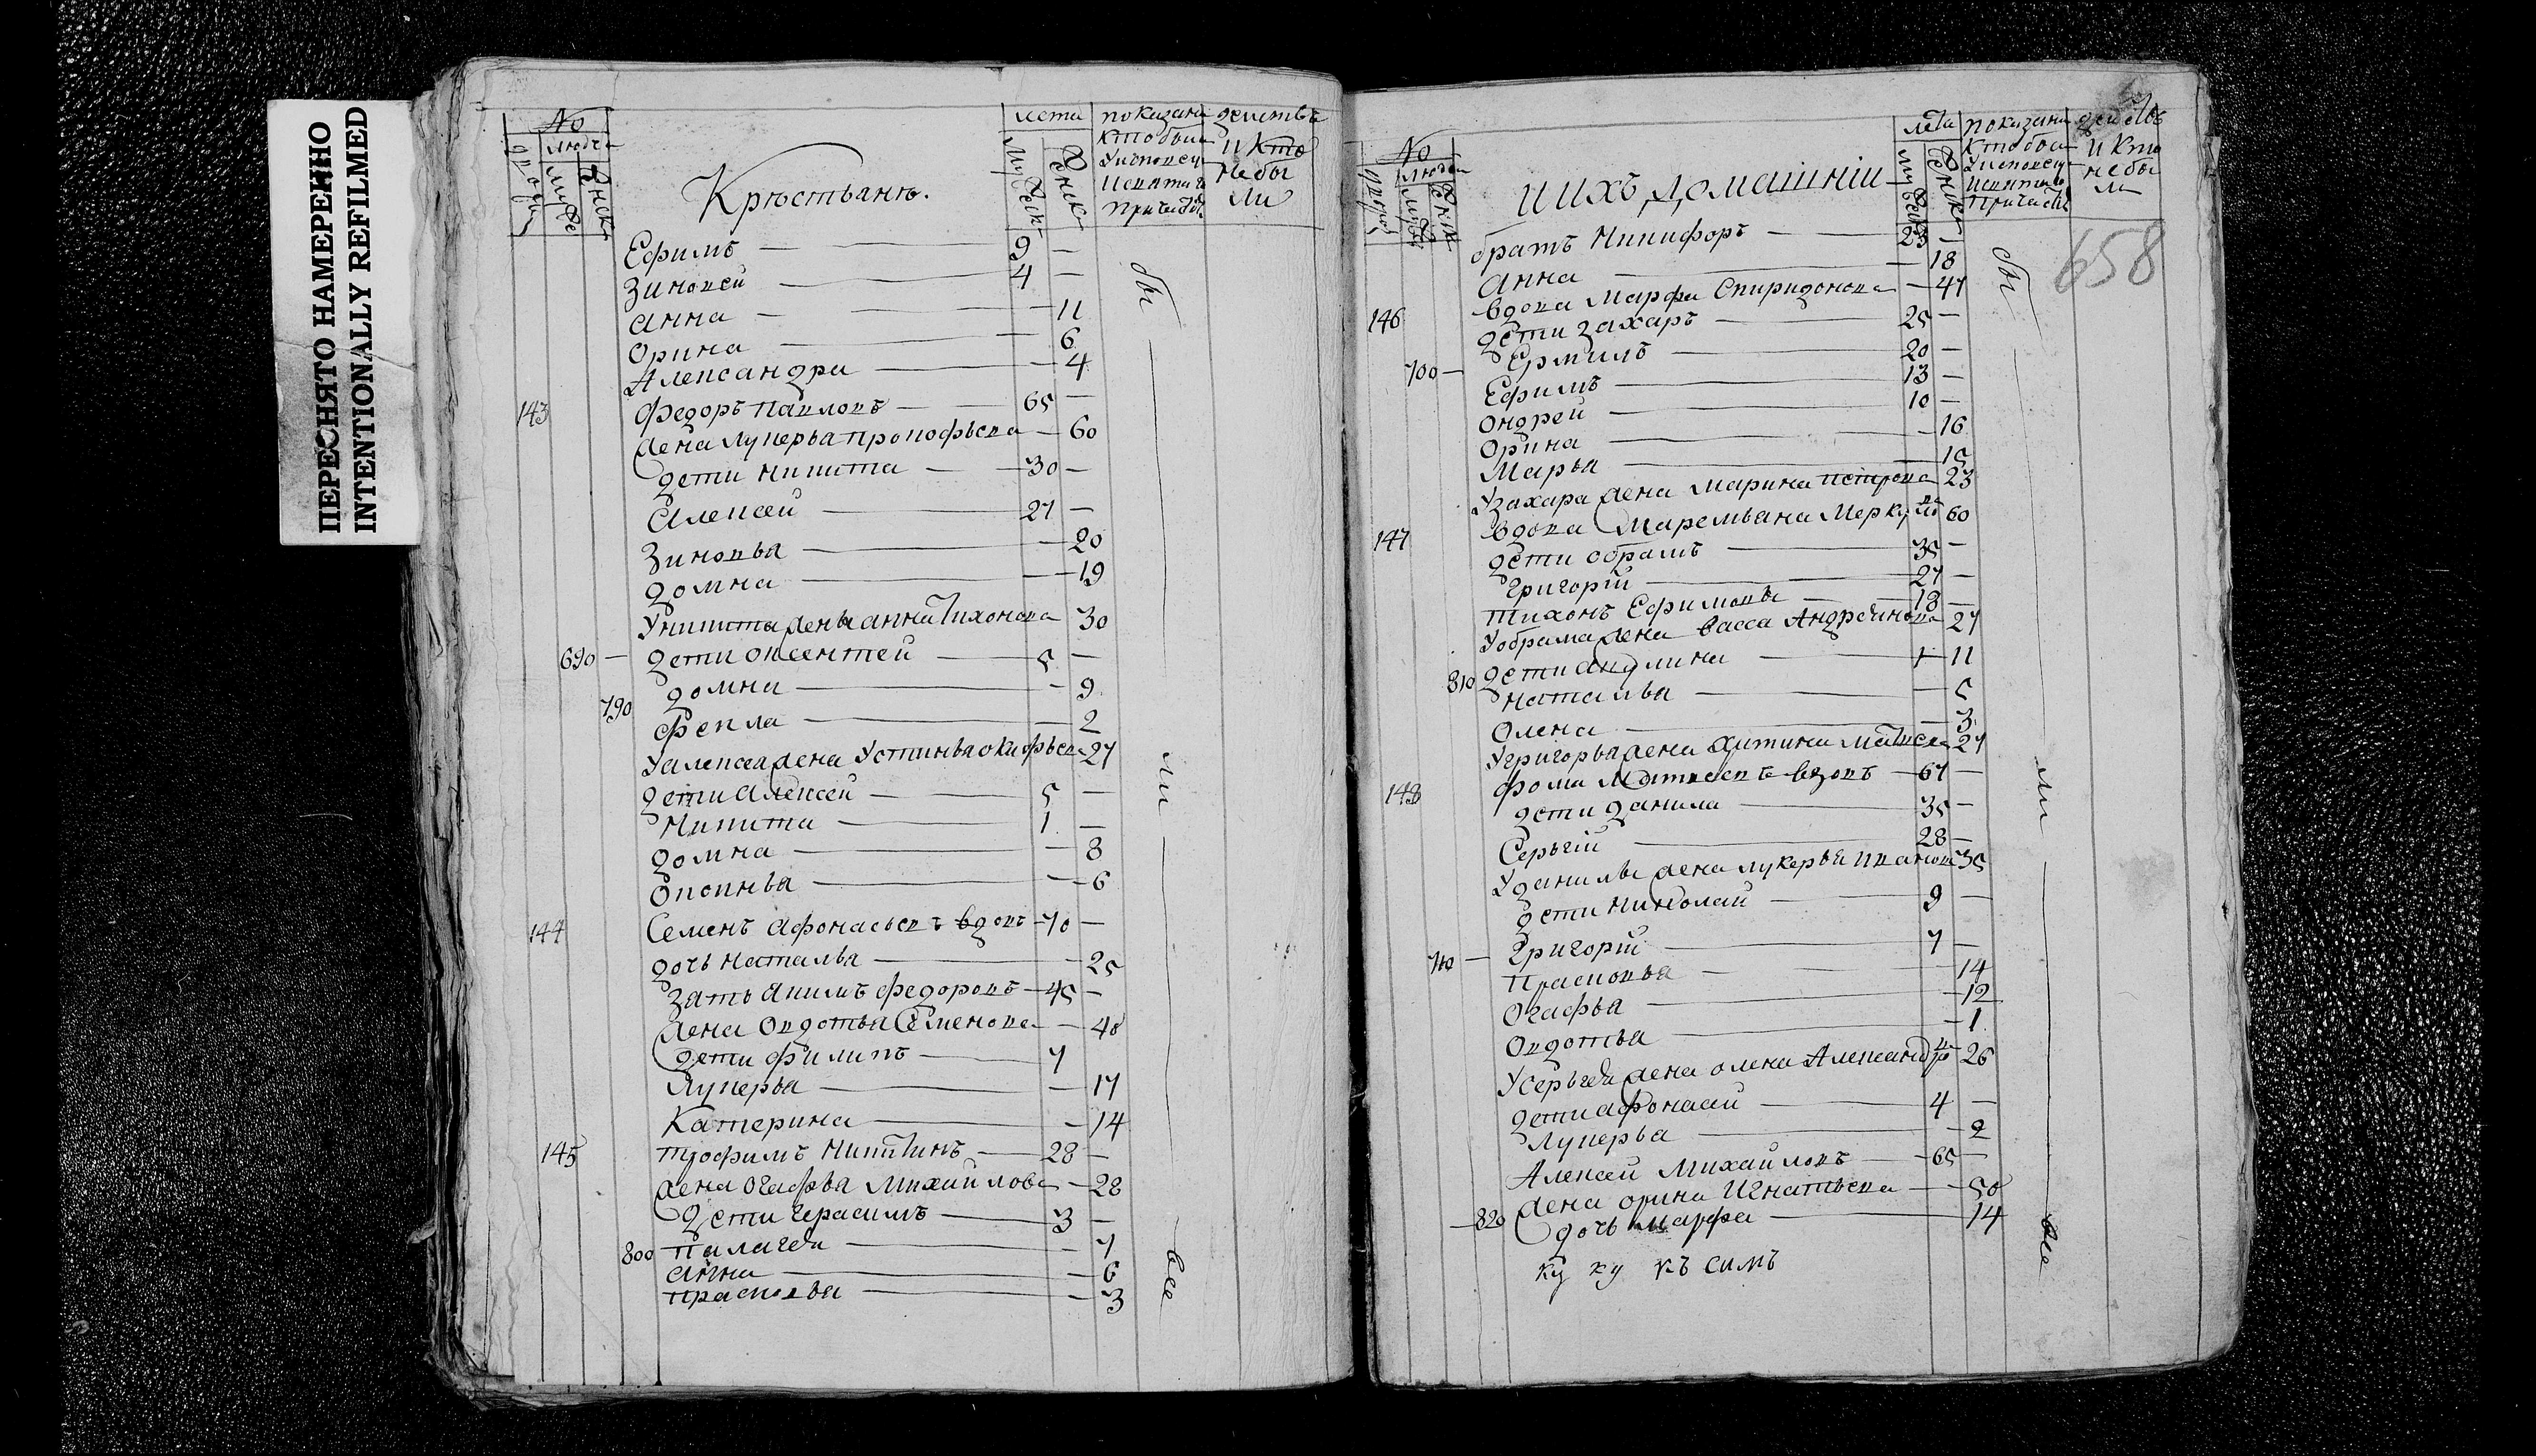 ПЕРЕСНЯТО НАМЕРЕННО
INTENTIONALLY REFILMED
No
людей
лета
показания действъ
кто были
у исповеди
и святаго
причастия
и кто
небы
ли
Крестьяне.
Ефимъ — 9 —
Зиновей — 4 —
Анна — 11
Орина — 6
Александра — 4
143 Федоръ Павловъ — 65 —
жена Лукерья Прокофьева — 60
дети Никита — 30 —
Алексей — 27 —
Зиновья — 20
Домна — 19
У Никиты жена Анна Тихонова 30
690 — дети Оксентей — 5 —
Домна — 9
790
Фекла — 2
У Алексея жена Устинья Окифьев 27
дети Алексей — 5 —
Никита — 1 —
Домна — 8
Оксинья — 6
144 Семенъ Афонасьевъ вдовъ — 70 —
дочь Наталья — 25
зять Акимъ Федоровъ — 45 —
жена Овдотья Семенова — 40
дети Филипъ — 7
Лукерья — 17
Катерина — 14
145 Трофимъ Никитинъ — 28 —
жена Огафья Михайлова — 28
дети Герасимъ — 3 —
800 Палагея — 7
Анна — 6
Прасковья — 3
бы
ли
все
No
людей
лета
показания действъ
кто были
у исповеди
и святаго
причастия
и кто
небы
ли
и ихъ домашнии
658
братъ Никифоръ — 23 —
Анна — 18
146 вдова Марфа Спиридонова — 47
дети Захаръ — 25 —
700 — Ермилъ — 20 —
Ефимъ — 13 —
Ондрей — 10 —
Орина — 16
Марья — 15
У Захара жена Марина Петрова 23
147 вдова Маремьяна Меркул 60
дети Обрамъ — 35 —
Григорий — 27 —
Тихонъ Ефимовъ — 18 —
У Обрама жена Васса Андреинова 27
810 дети Акулина — 11
Наталья — 5
Олена — 3
У Григорья жена Матвев 27
148 Фома Матвеевъ вдовъ — 67 —
дети Данила — 35 —
Серьгий — 28 —
У Данилы жена Лукерья Иванов 35
дети Николай — 9 —
710 — Григорий — 7 —
Прасковья — 14
Огафья — 12
Овдотья — 1
У Серьгея жена Олена Александр 26
дети Афонасий — 4 —
Лукерья — 2
Алексей Михайловъ — 65 —
жена Орина Игнатьева — 50
820 дочь Марфа — 14
ку ку къ симъ
бы
ли
все